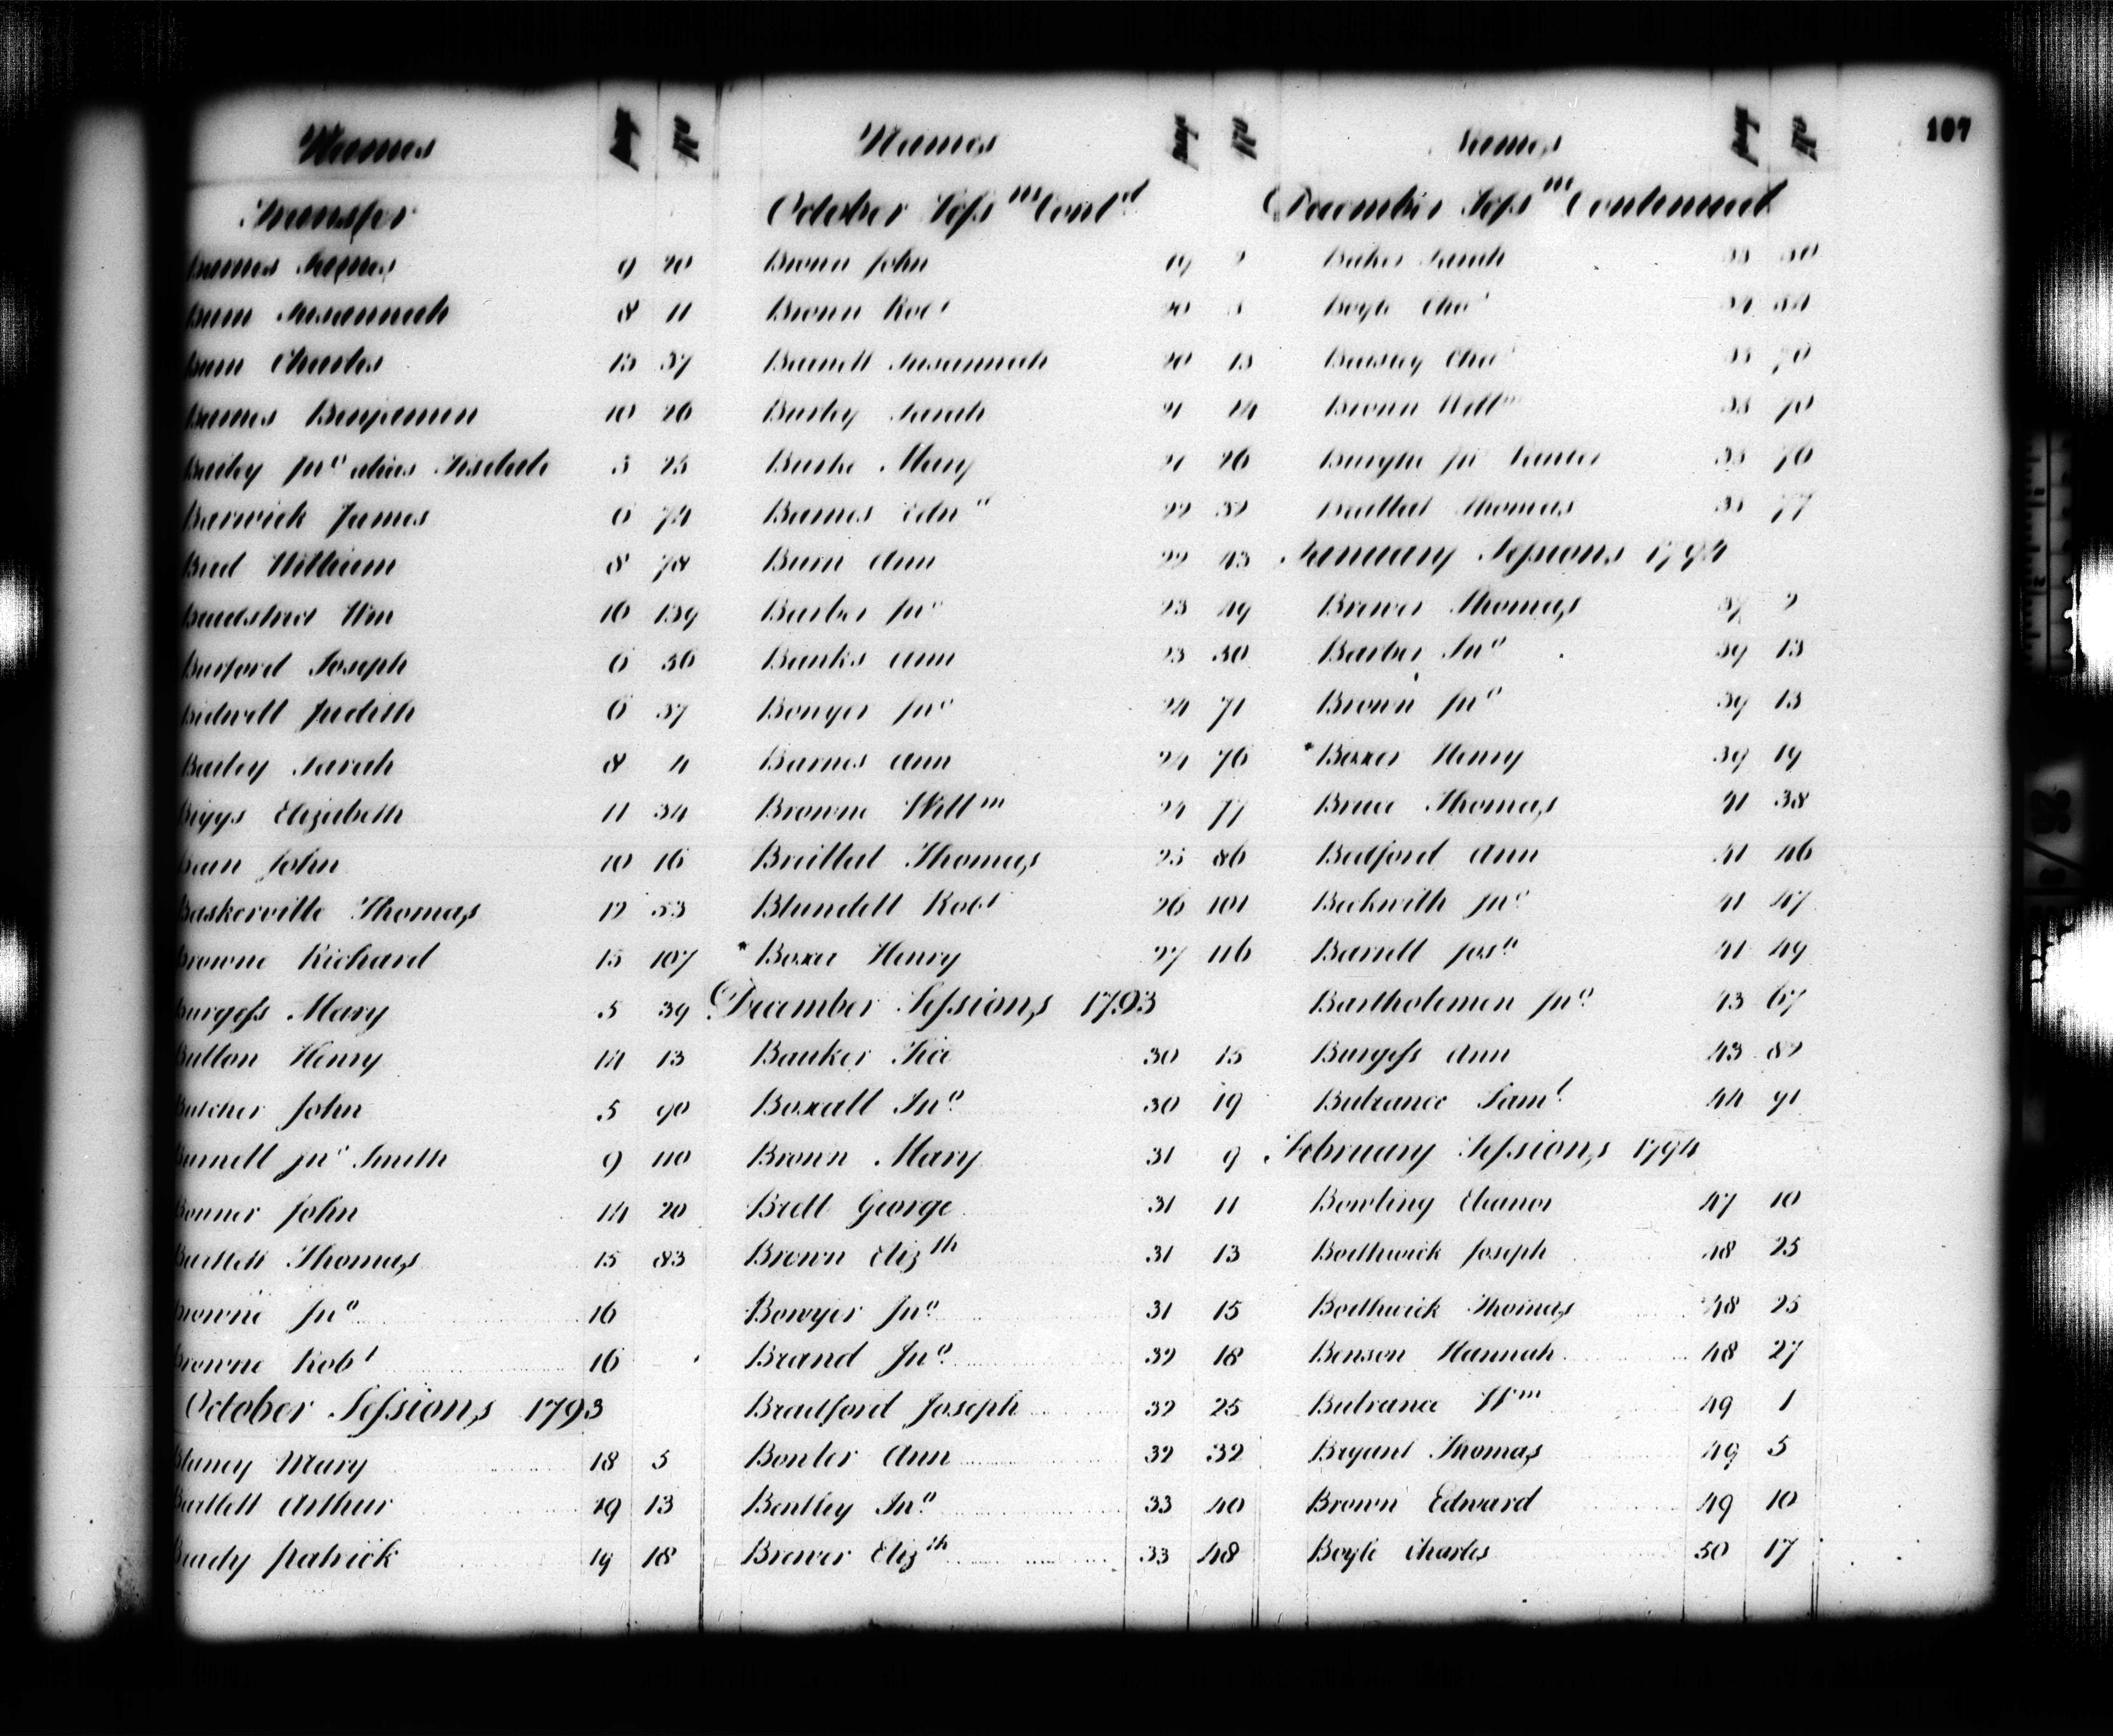 107
Names page No
Transfer
Barnes Agnes 9 20
Burn Susannah 8 11
Burn Charles 13 37
Barnes Benjamin 10 26
Bailey Jno alias 5 25
Barwick James 6 74
Bird William 8 78
Wm 16 139
Burford Joseph 6 36
Bidwell Judith 6 37
Bailey Sarah 8 4
Biggs Elizabeth 11 34
Bean John 10 16
Baskerville Thomas 12 53
Browne Richard 15 107
Burgess Mary 5 39
Button Henry 14 13
Butcher John 5 90
Burnell Jno Smith 9 110
Bonner John 14 20
Bartlett Thomas 15 83
Browne Jno 16
Browne Robt 16
October Sessions 1793
Blaney Mary 18 5
Bartlett Arthur 19 13
Brady Patrick 19 18
Names page No
October Sessns Contd
Brown John 19
Brown Robt 20
Barrett Susannah 20 13
Busby Sarah 21 24
Burke Mary 21 26
Barnes Edwd 22 32
Burn Ann 22 43
Barber Jno 23 49
Banks Ann 23 50
Bonyer Jno 24 71
Barnes Ann 24 76
Browne Willm 24 77
Thomas 25 86
Blundell Robt 26 101
* Boxer Henry 27 116
December Sessions 1793
Banker 30 15
Boxall Jno 30 19
Brown Mary 31 9
Brett George 31 11
Brown Elizth 31 13
Bowyer Jno 31 15
Brand Jno 32 18
Bradford Joseph 32 25
Bonter Ann 32 32
Bentley Jno 33 40
Brewer Elizth 33 48
Names page No
December Sessns Continued
Baker Sarah 50
Boyle Chas 54
Chas 70
Brown Willm 70
76
Thomas 77
January Sessions 1794
Brewer Thomas 37 2
Barber Jno 39 13
Brown Jno 39 13
* Boxer Henry 39 19
Brace Thomas 41 38
Bedford Ann 41 46
Beckwith Jno 41 47
Barrett Josh 41 49
Bartholemew Jno 43 67
Burgess Ann 43 82
Butrance Saml 44 91
February Sessions 1794
Bowling Eleanor 47 10
Bodthwick Joseph 48 25
Bodthwick Thomas 48 25
Benson Hannah 48 27
Butrance Wm 49 1
Bryant Thomas 49 5
Brown Edward 49 10
Boyle Charles 50 17